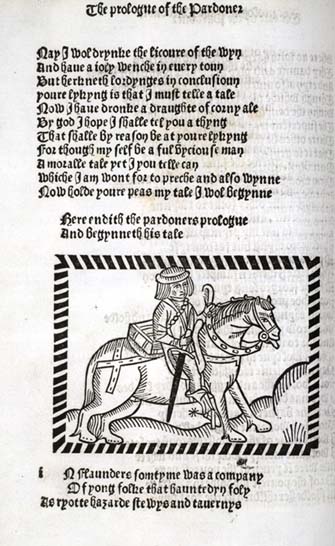 The prologue of the Pardoner
Nay I wol drynke the licoure of the wyn
And have a ioly wenche in every toun
But herkneth lordynges in conclusioun
youre lykyng is that I must telle a tale
Now I have dronke a draughte of corny ale
By god I hope I shalle tel you a thyng
That shalle by reason be at youre lykyng
For though my self be a ful vycious man
A moralle tale yet I you telle can
Whiche I am wont for to preche and also wynne
Now holde youre peas my tale I wol begynne
Here endith the pardoners prologue
And begynneth his tale
i N Flaunders somtyme was a company
Of yong folke that hauntedyn foly
As ryotte hazarde stewys and tavernys